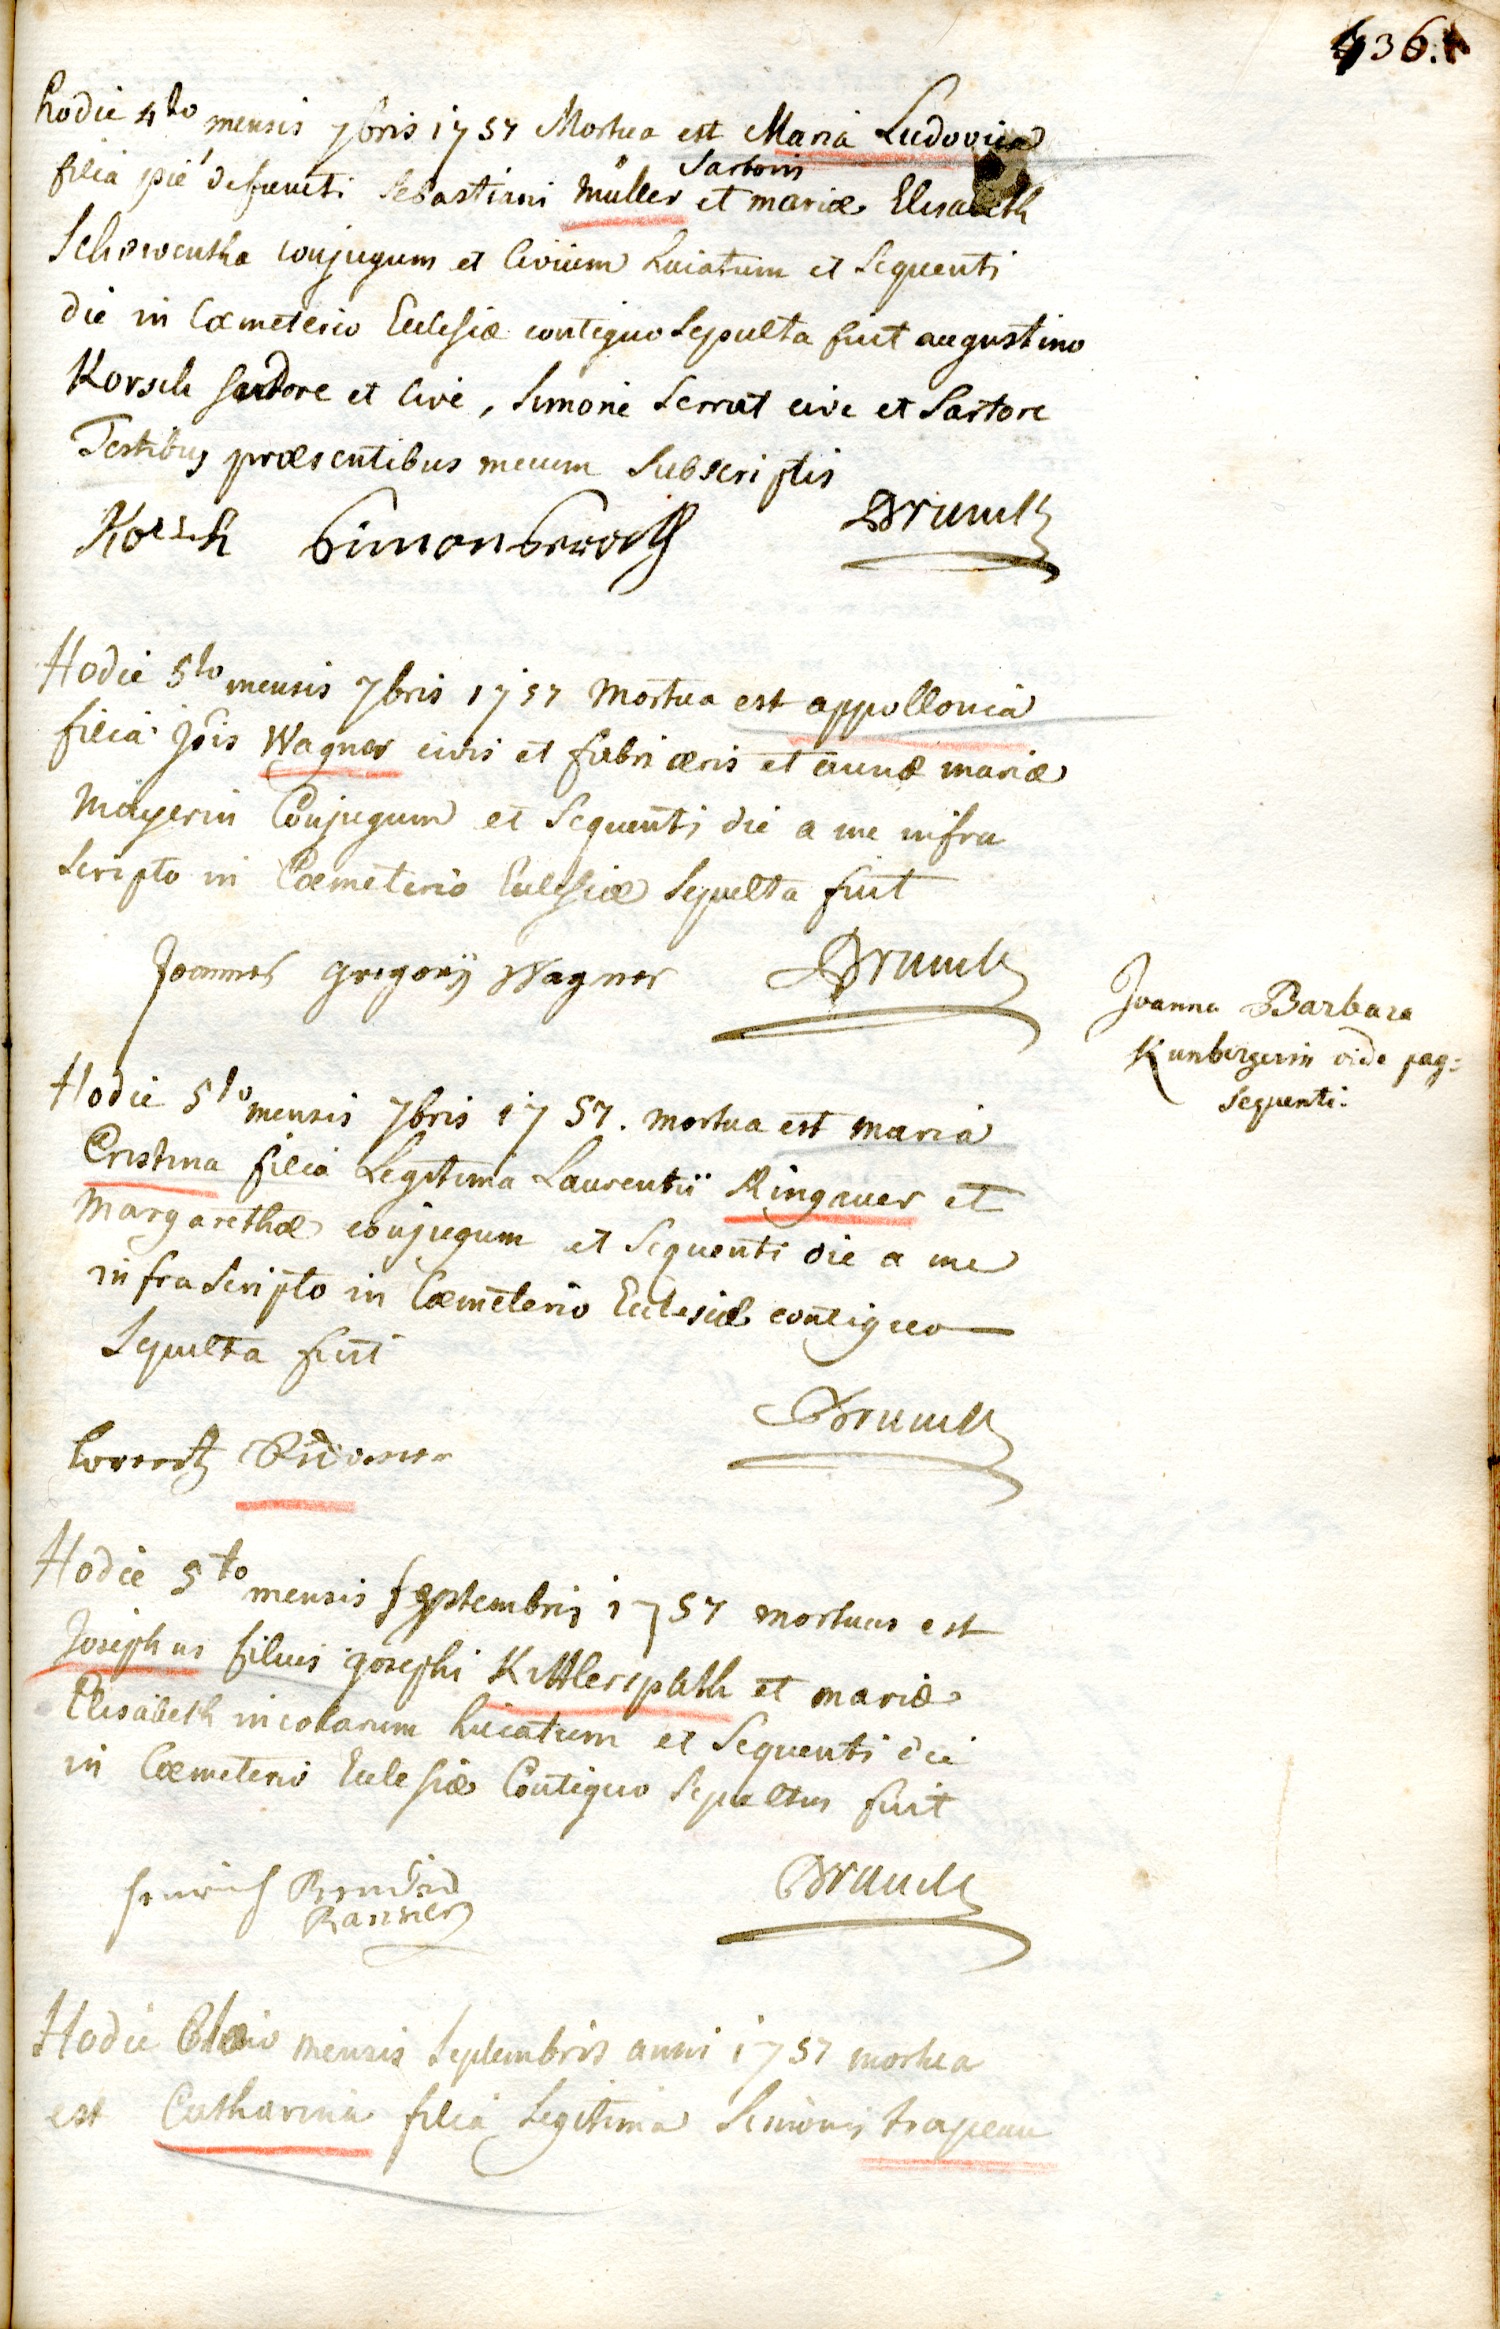 436.
hodie 4to mensis 7bris 1757 Mortua est Maria Ludovica
filia piè defuncti Sebastiani Müller Sartoris et mariæ Elisabeth
conjugum et Civium huiatum et Sequenti
die in Cœmeterio Ecclesiæ contiguo Sepulta fuit augustino
Korsch sartore et Cive, Simone Serrat cive et Sartore
Testibus præsentibus mecum Subscriptis
Korsch Simon
Hodie 5to mensis 7bris 1757 Mortua est appollonia
filia jois Wagner civis et fabri æris et annæ mariæ
Mayerin Conjugum et Sequenti die a me infra
scripto in Cœmeterio Ecclesiæ Sepulta fuit
Joannes gregorÿ Wagner
Joanna Barbara
Kunbergerin vide pag:
sequenti.
Hodie 5to mensis 7bris 1757. mortua est maria
Cristina filia Legitima Laurentii Ringauer et
Margarethæ conjugum et Sequenti die a me
infra Scripto in Cœmeterio Ecclesiæ contiguo
Sepulta fuit
Hodie 5to mensis septembris 1757 mortuus est
Josephus filius josephi Kittlerspath et mariæ
Elisabeth incolarum huiatum et Sequenti die
in Cœmeterio Ecclesiæ Contiguo Sepultus fuit
Hodie mensis Septembris anni 1757 mortua
est Catharina filia Legitima Simonis trapeau